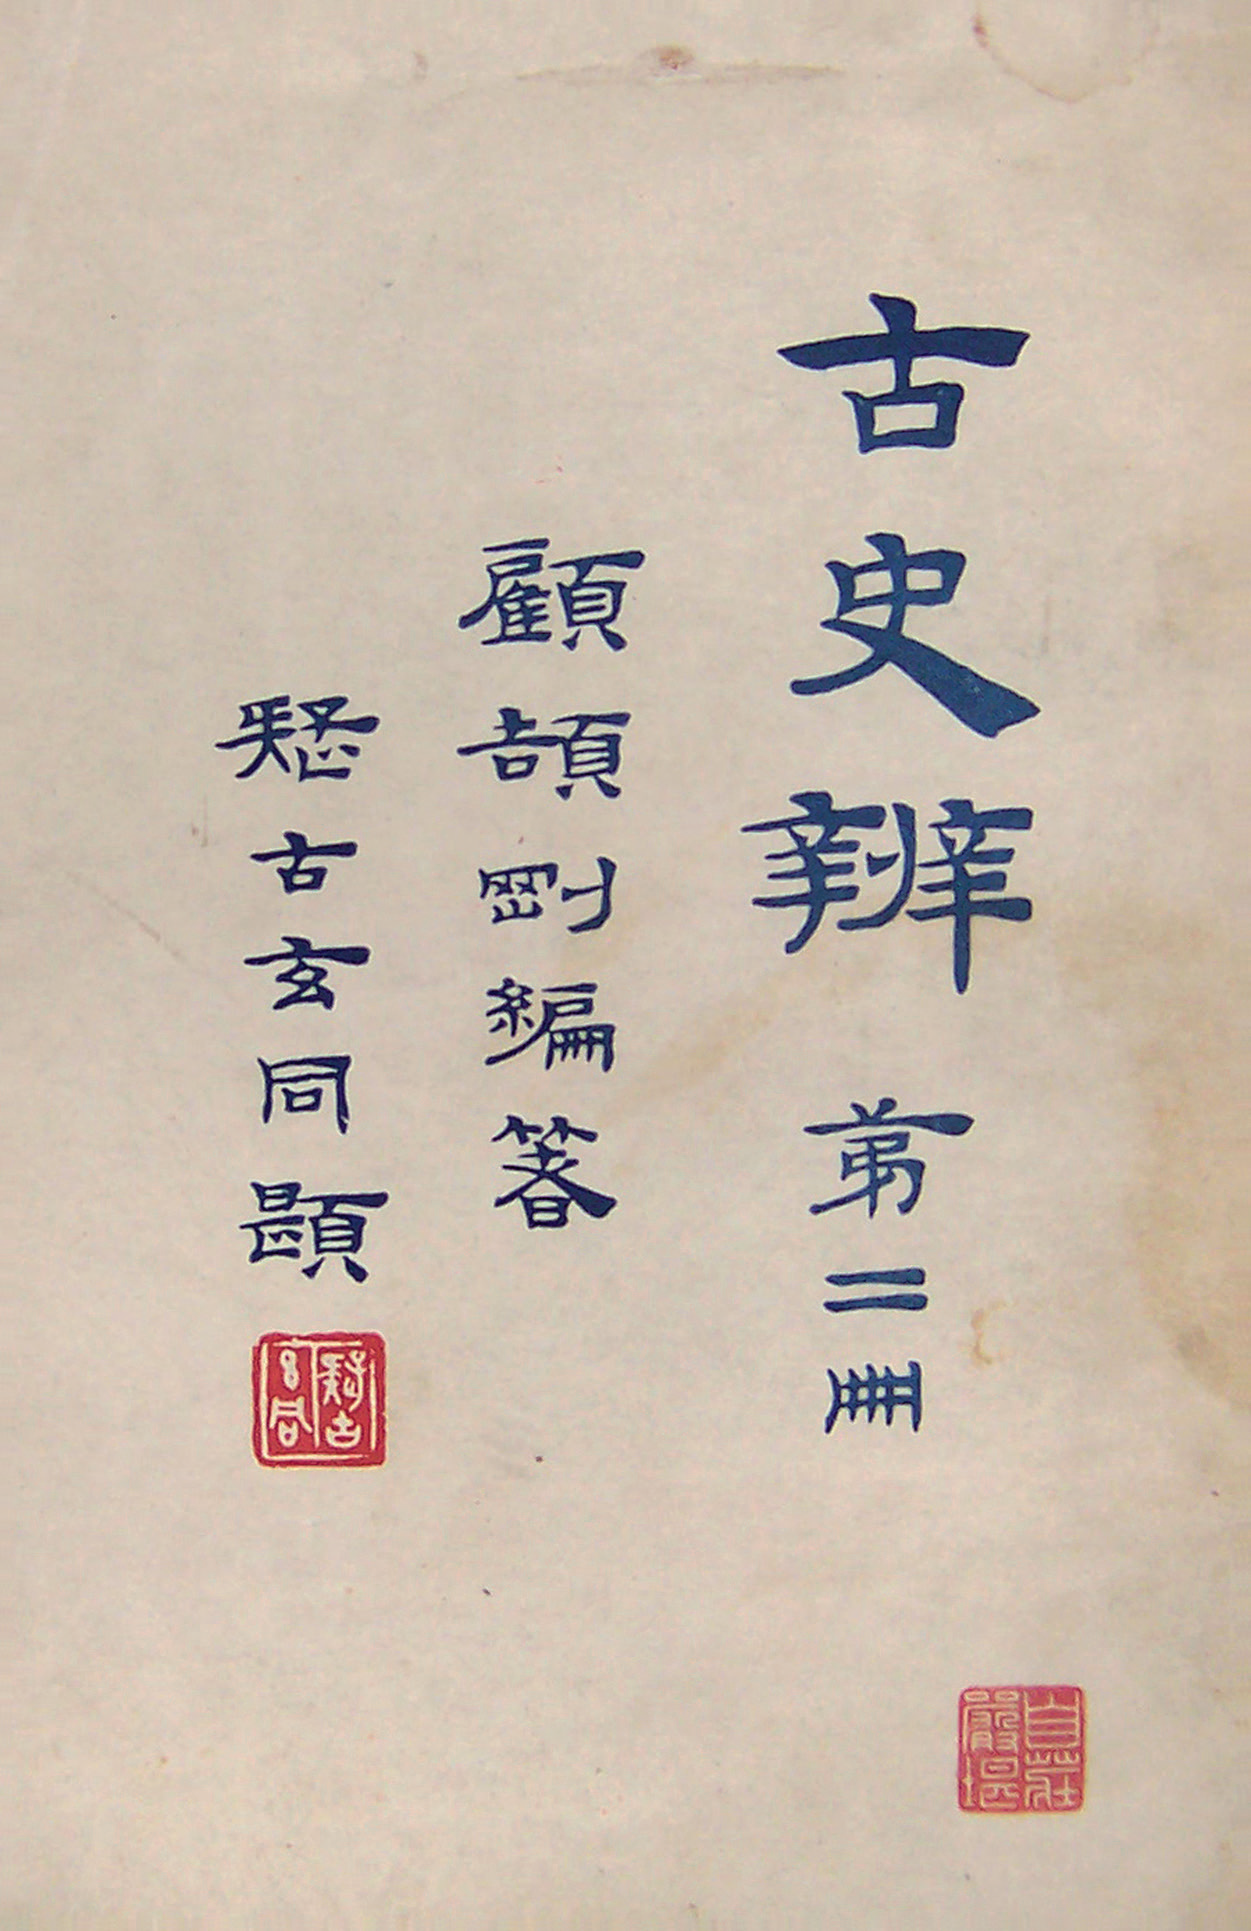 古史辨 第二冊
顧頡剛編著
疑古玄同題
疑古玄同
自莊嚴堪